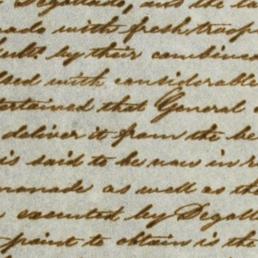 Degollado, and the la
nado with fresh troop
by their combined
with considerable
tertained that General
deliver it from the be
is said to be now in r
monade as well as th
executed by Degoll
point to obtain is the